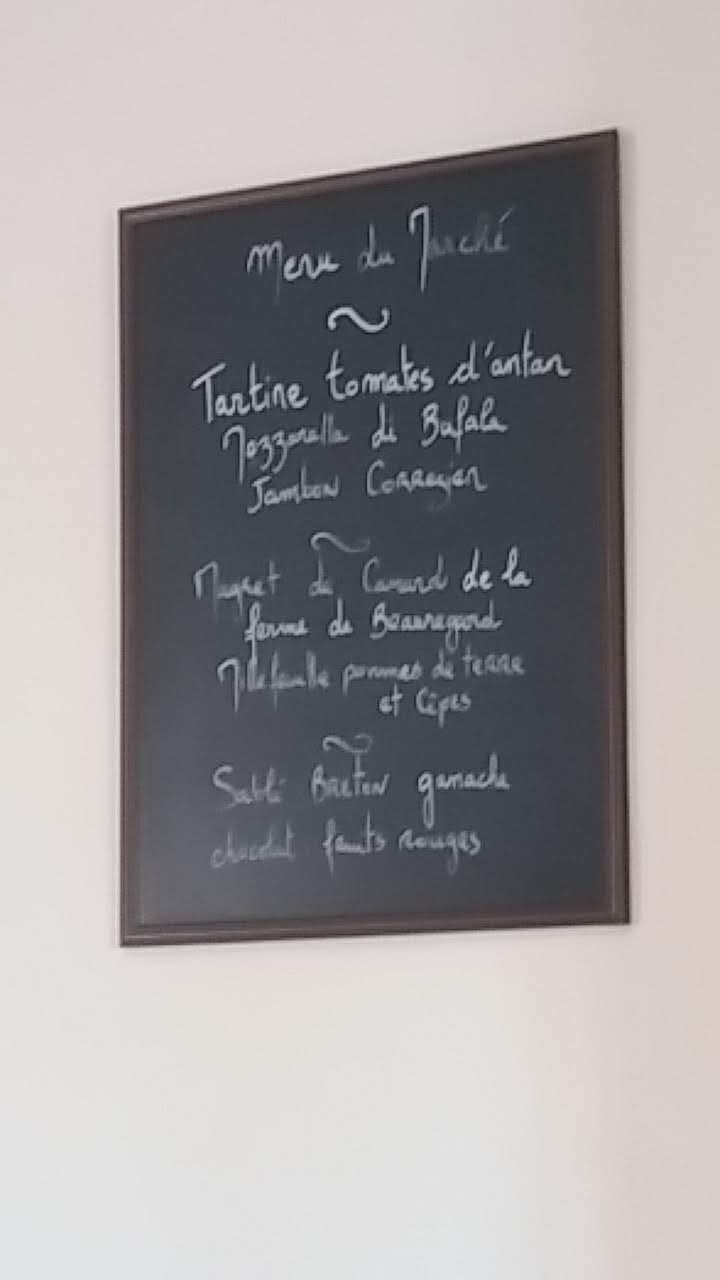 Menu du Marché
Tartine tomates d'antan
Mozzarella di Bufala
Jambon Corregien
Magret de Canard de la
ferme de Beauregard
Millefeuille pommes de terre
et Cèpes
Sablé Breton ganache
chocolat fruits rouges